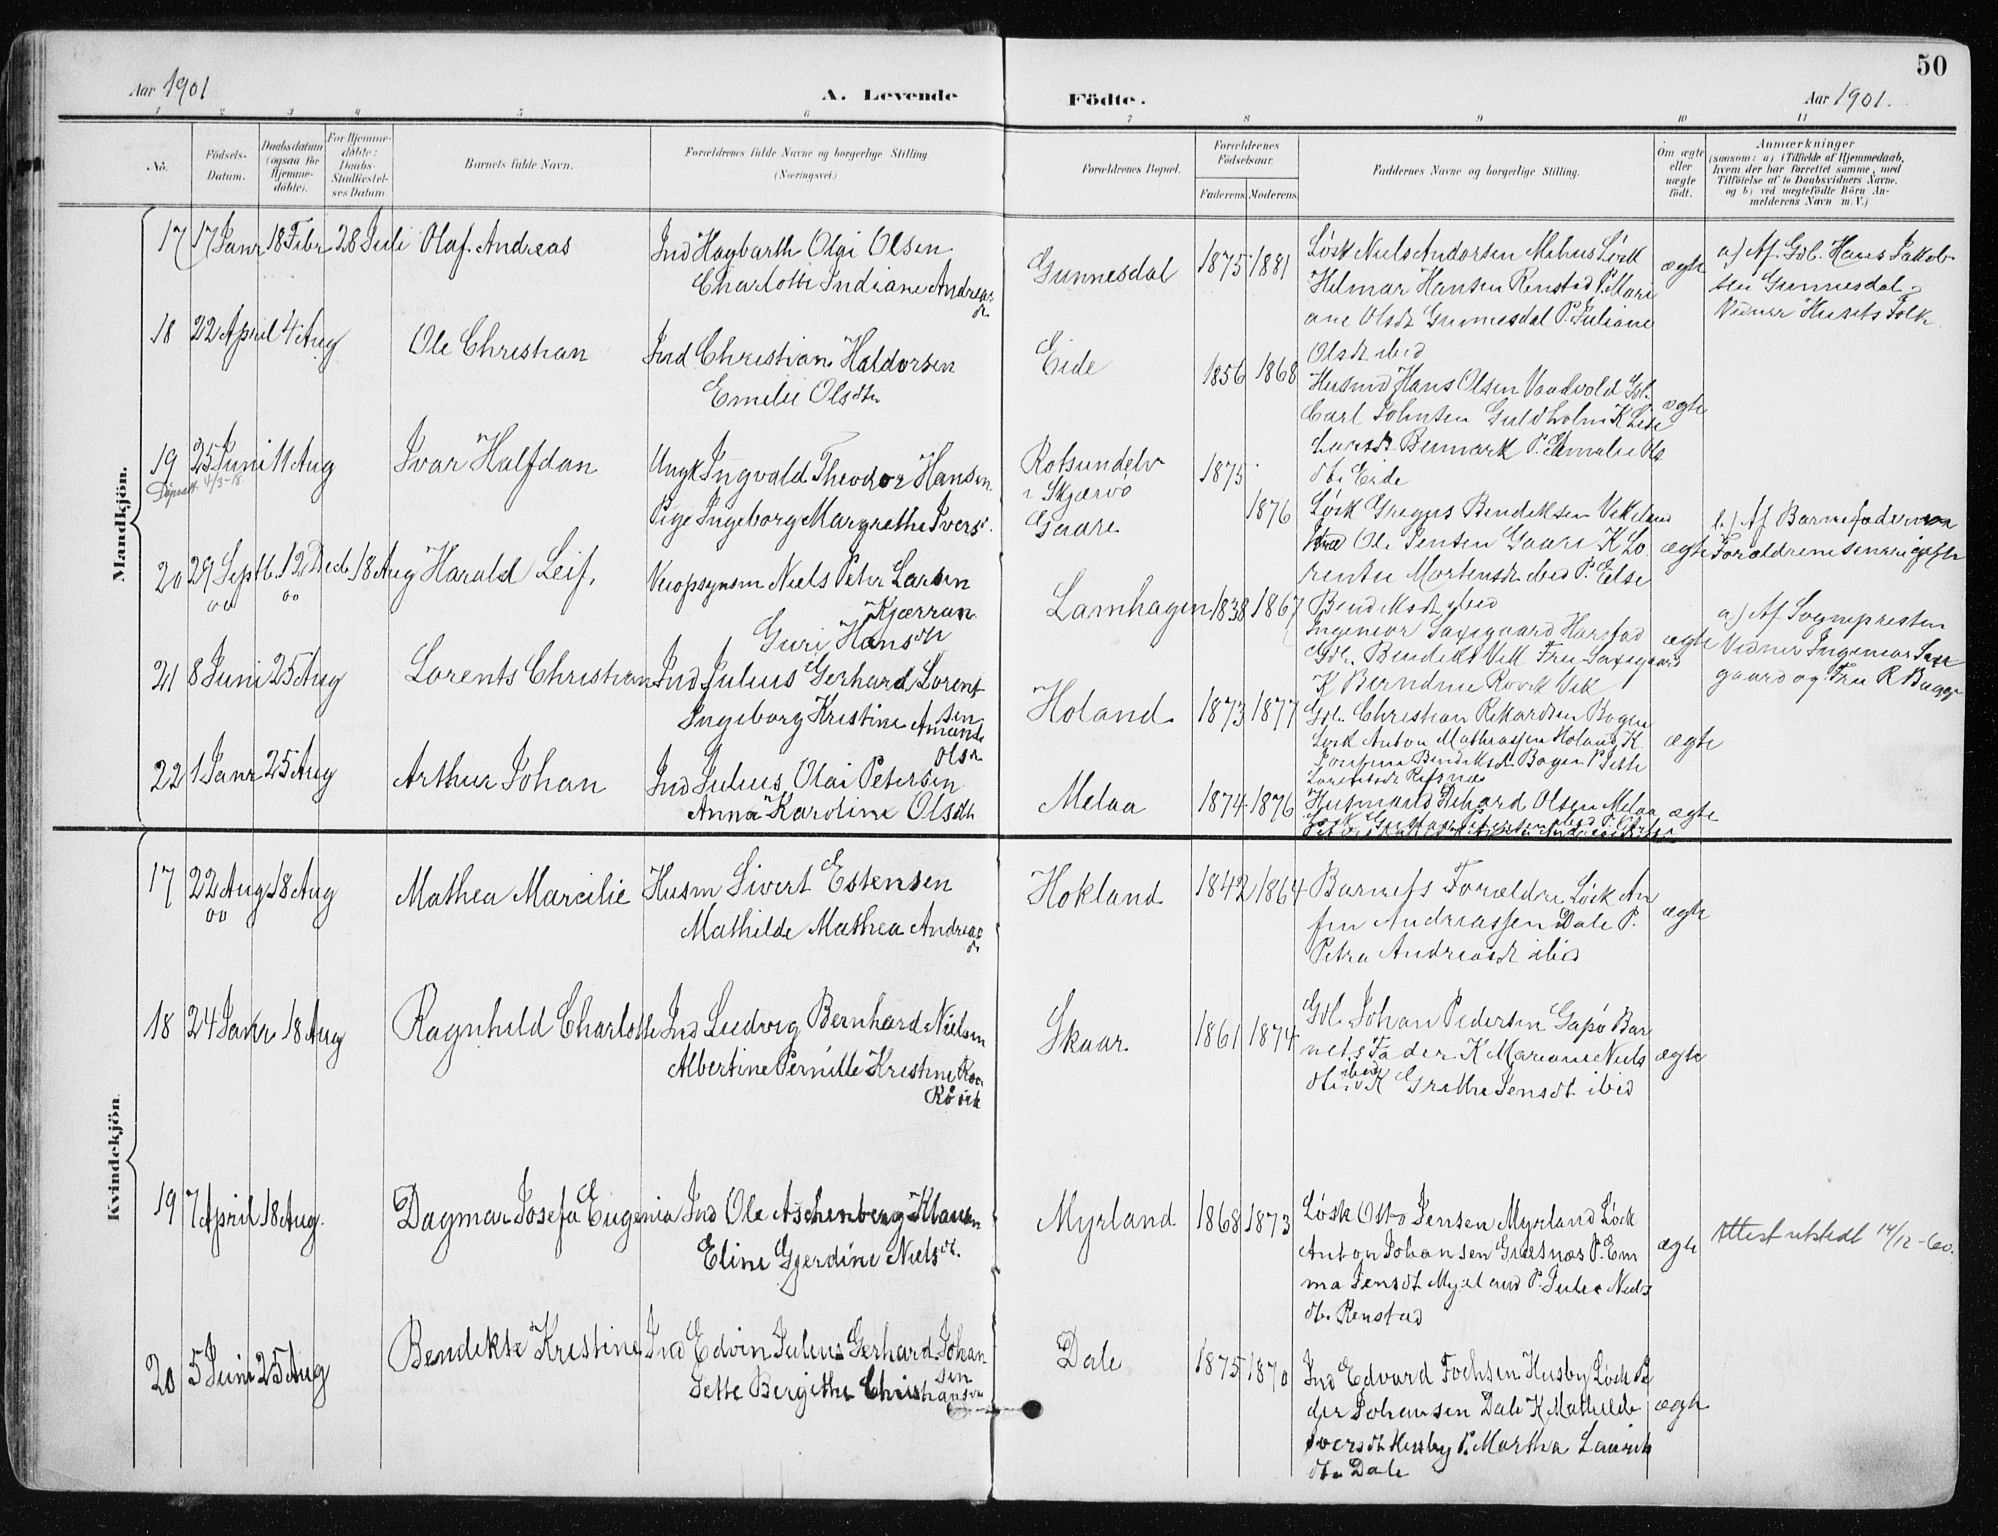 50
Aar 1901
A. Levende Födte.
Aar 1901.
1 2 3 4 5 6 7 8 9 10 11
No.
Födsels-Datum.
Daabsdatum (ogsaa for Hjemme-döbte).
For Hjemme-döbte: Daabs-Stadfæstel-ses Datum.
Barnets fulde Navn.
Forældrenes fulde Navne og borgerlige Stilling (Næringsvei.)
Forældrenes Bopæl.
Forældrenes Födselsaar.
Faderens. Moderens.
Faddernes Navne og borgerlige Stilling.
Om ægte eller uægte födt.
Anmærkninger
(saasom: a) i Tilfælde af Hjemmedaab,
hvem der har forrettet samme, med
Tilföielse af to Daabsvidners Navne,
og b) ved uægtefödte Börn An-
melderens Navn m. V.)
Mandkjön.
17 17 Janr 18 Febr 28 Juli Olaf Andreas
Ind Hagbarth Olai Olsen
Charlotte Indiane Andreas
dt.
Gunnesdal 1875 1881
Løsk Niels Andorsen Mehus Løsk
Hilmar Hansen Renstad P. Mari
ane Olsdt Gunnesdal P. Juliane
Olsdt ibid
ægte
a) Af Gdb. Hans Jakob-
sen Gunnesdal
Vidner Husets Folk.
18 22 April 4 Aug Ole Christian
Ind Christian Haldorsen
Emelie Olsdtr
Eide 1856 1868
Husmd Hans Olsen Vaadvold Gdb.
Carl Johnsen Guldholm K Lise
Larsdt Benmark P. Emalie Ols
dtr Eide
ægte
19 25 Juni 11 Aug Ivar Halfdan
4/3-18
Ungk Ingvald Theodor Hansen
Pige Ingeborg Margrethe Ivers.
Rotsundelv
i Skjærvö
Gaare
1875
1876
Løsk Bendiksen
Ole Jensen Gaare K Lo
rentse Mortensdt ibid P. Else
Bendiksdt ibid
ægte
b.) Af Barnefaderen
Forældrene senere gifte
20 29 Septb. 12 Decb. 18 Aug Harald Leif,
00 00
Veiopsynsm Niels Peter Larsen
Kjærran
Guri Hansdtr
Lamhagen 1838 1867
Ingeniør Saxegaard Harstad
Gdb. Bendikt Vik Fru Saxegaard
K Berndine Rovik Vik
ægte
a) Af Sognepresten
Vidner Ingeniør Saxe
gaard og Fru R Bugge
21 8 Juni 25 Aug Lorents Christian
Ind Julius Gerhard Lorent
sen
Ingeborg Kristine Amanda
Olsdt
Holand 1873 1877
Gdb. Christian Rikardsen Bogen
Løsk Anton Mathiassen Holand K.
Bendiksdt Bogen P Jette
Lorentsdt Refsnæs
ægte
22 1 Janr 25 Aug Arthur Johan
Ind Julius Olai Petersen
Anna Karoline Olsdtr
Melaa 1874 1876
Husmand Rikard Olsen Melaa
ægte
Kvindekjön
17 22 Aug 18 Aug Mathea Marcilie
00
Husm Sivert Estensen
Mathilde Mathea Andreas
dt
Hokland 1842 1864
Barnets Forældre Løsk An
fin Andreassen Dale P.
Petra Andreasdt ibid
ægte
18 24 Janr 18 Aug Ragnhild Charlotte
Ind Ludvig Bernhard Nielsen
Albertine Pernille Kristine
Røvik
Skaar 1861 1874
Gdb. Johan Pedersen Gapö Bar
nets Fader K Mariane Niels
dtr ibid K Grethe Jensdt ibid
ægte
19 7 April 18 Aug. Dagmar Josefa Eugenia
Ind Ole Aschenberg Klausen
Eline Gjerdine Nielsdt.
Myrland 1868 1873
Løsk Otto Jensen Myrland Løsk
Anton Johansen Græsnæs P. Em
ma Jensdt Myrland P. Julie Niels
dtr Renstad
ægte
Attest utstedt 14/12-60.
20 5 Juni 25 Aug Bendikte Kristine
Ind Edvin Julius Gerhard Johan
sen
Jette Bergitte Christiansdt
Dale 1875 1870
Ind Edvard Fochsen Husby Løsk Pe
der Johansen Dale K Mathilde
Iversdt Husby P. Martha Laurits
dtr Dale
ægte